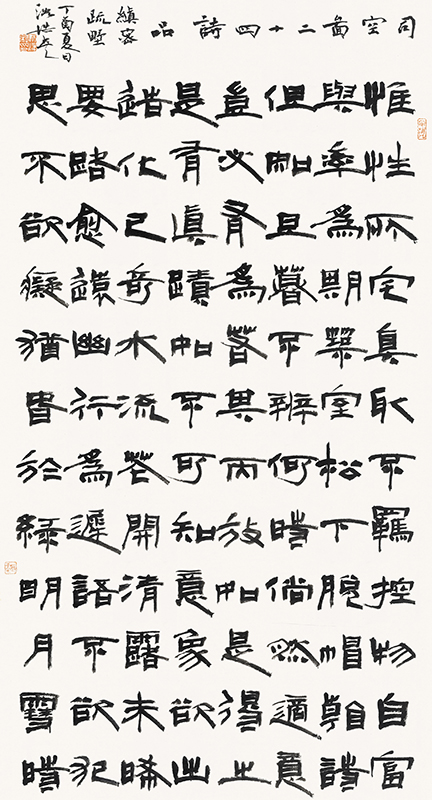 司空啚二十四詩品
縝密
疏野
丁酉夏日
惟性所宅真取不羈控物自富
與率為期築室松下脫帽看詩
但知旦暮不辨何時倘然適意
豈必有為若其天放如是得之
是有真蹟如不可知意象欲出
造化已奇水流花開清露未晞
要路愈遠幽行為遲語不欲犯
思不欲癡猶春於綠明月雪時